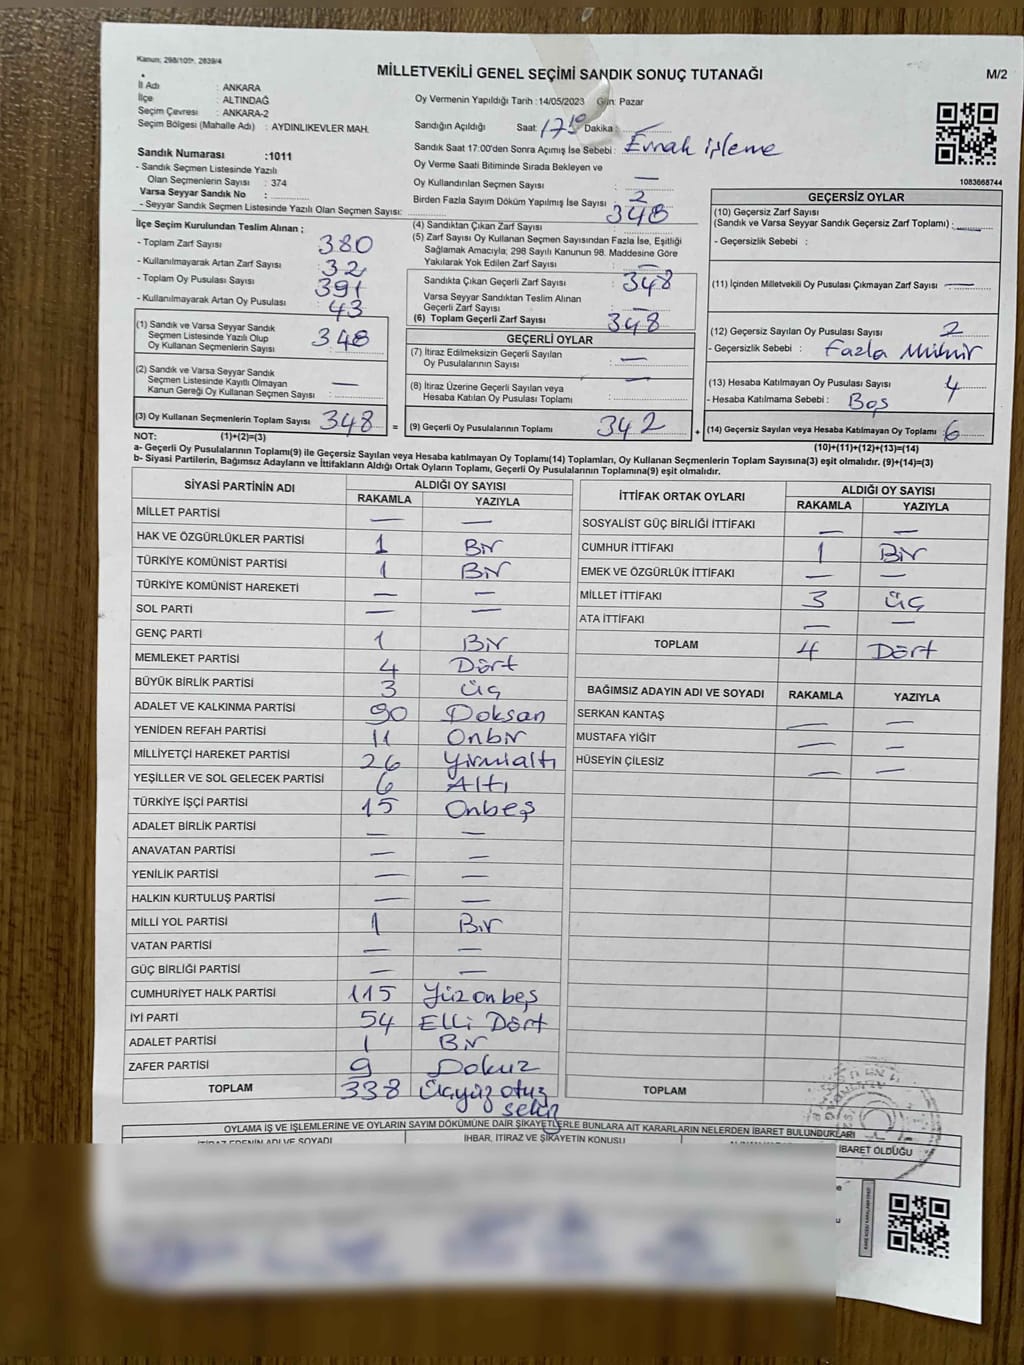 Kanun: 298/105, 2839/4
MİLLETVEKİLİ GENEL SEÇİMİ SANDIK SONUÇ TUTANAĞI
M/2
İl Adı : ANKARA
İlçe : ALTINDAĞ
Seçim Çevresi : ANKARA-2
Seçim Bölgesi (Mahalle Adı) : AYDINLIKEVLER MAH.
Sandık Numarası :1011
- Sandık Seçmen Listesinde Yazılı
Olan Seçmenlerin Sayısı : 374
Varsa Seyyar Sandık No :
- Seyyar Sandık Seçmen Listesinde Yazılı Olan Seçmen Sayısı:
Oy Vermenin Yapıldığı Tarih : 14/05/2023 Gün: Pazar
Sandığın Açıldığı Saat: 17 10 Dakika :
Sandık Saat 17:00'den Sonra Açımış İse Sebebi : Evrak işleme
Oy Verme Saati Bitiminde Sırada Bekleyen ve
Oy Kullandırılan Seçmen Sayısı : —
Birden Fazla Sayım Döküm Yapılmış İse Sayısı : 2
1083668744
İlçe Seçim Kurulundan Teslim Alınan ;
- Toplam Zarf Sayısı : 380
- Kullanılmayarak Artan Zarf Sayısı : 32
- Toplam Oy Pusulası Sayısı : 391
- Kullanılmayarak Artan Oy Pusulası : 43
(1) Sandık ve Varsa Seyyar Sandık
Seçmen Listesinde Yazılı Olup
Oy Kullanan Seçmenlerin Sayısı : 348
(2) Sandık ve Varsa Seyyar Sandık
Seçmen Listesinde Kayıtlı Olmayan
Kanun Gereği Oy Kullanan Seçmen Sayısı : —
(3) Oy Kullanan Seçmenlerin Toplam Sayısı 348
(4) Sandıktan Çıkan Zarf Sayısı : 348
(5) Zarf Sayısı Oy Kullanan Seçmen Sayısından Fazla İse, Eşitliği
Sağlamak Amacıyla; 298 Sayılı Kanunun 98. Maddesine Göre
Yakılarak Yok Edilen Zarf Sayısı : —
Sandıkta Çıkan Geçerli Zarf Sayısı : 348
Varsa Seyyar Sandıktan Teslim Alınan
Geçerli Zarf Sayısı : —
(6) Toplam Geçerli Zarf Sayısı : 348
GEÇERLİ OYLAR
(7) İtiraz Edilmeksizin Geçerli Sayılan
Oy Pusulalarının Sayısı : —
(8) İtiraz Üzerine Geçerli Sayılan veya
Hesaba Katılan Oy Pusulası Toplamı : —
= (9) Geçerli Oy Pusulalarının Toplamı 342
GEÇERSİZ OYLAR
(10) Geçersiz Zarf Sayısı
(Sandık ve Varsa Seyyar Sandık Geçersiz Zarf Toplamı) : —
- Geçersizlik Sebebi :
(11) İçinden Milletvekili Oy Pusulası Çıkmayan Zarf Sayısı : —
(12) Geçersiz Sayılan Oy Pusulası Sayısı : 2
- Geçersizlik Sebebi : Fazla Mühür
(13) Hesaba Katılmayan Oy Pusulası Sayısı : 4
- Hesaba Katılmama Sebebi : Boş
+ (14) Geçersiz Sayılan veya Hesaba Katılmayan Oy Toplamı 6
NOT: (1)+(2)=(3)
(10)+(11)+(12)+(13)=(14)
a- Geçerli Oy Pusulasının Toplamı(9) ile Geçersiz Sayılan veya Hesaba katılmayan Oy Toplamı(14) Toplamları, Oy Kullanan Seçmenlerin Toplam Sayısına(3) eşit olmalıdır. (9)+(14)=(3)
b- Siyasi Partilerin, Bağımsız Adayların ve İttifakların Aldığı Ortak Oyların Toplamı, Geçerli Oy Pusulalarının Toplamına(9) eşit olmalıdır.
SİYASİ PARTİNİN ADI ALDIĞI OY SAYISI
RAKAMLA YAZIYLA
MİLLET PARTİSİ — —
HAK VE ÖZGÜRLÜKLER PARTİSİ 1 Bir
TÜRKİYE KOMÜNİST PARTİSİ 1 Bir
TÜRKİYE KOMÜNİST HAREKETİ — —
SOL PARTİ — —
GENÇ PARTİ 1 Bir
MEMLEKET PARTİSİ 4 Dört
BÜYÜK BİRLİK PARTİSİ 3 Üç
ADALET VE KALKINMA PARTİSİ 90 Doksan
YENİDEN REFAH PARTİSİ 11 Onbir
MİLLİYETÇİ HAREKET PARTİSİ 26 Yirmialtı
YEŞİLLER VE SOL GELECEK PARTİSİ 6 Altı
TÜRKİYE İŞÇİ PARTİSİ 15 Onbeş
ADALET BİRLİK PARTİSİ — —
ANAVATAN PARTİSİ — —
YENİLİK PARTİSİ — —
HALKIN KURTULUŞ PARTİSİ — —
MİLLİ YOL PARTİSİ 1 Bir
VATAN PARTİSİ — —
GÜÇ BİRLİĞİ PARTİSİ — —
CUMHURİYET HALK PARTİSİ 115 Yüzonbeş
İYİ PARTİ 54 Elli Dört
ADALET PARTİSİ 1 Bir
ZAFER PARTİSİ 9 Dokuz
TOPLAM 338 Üçyüz otuz
sekiz
İTTİFAK ORTAK OYLARI ALDIĞI OY SAYISI
RAKAMLA YAZIYLA
SOSYALİST GÜÇ BİRLİĞİ İTTİFAKI — —
CUMHUR İTTİFAKI 1 Bir
EMEK VE ÖZGÜRLÜK İTTİFAKI — —
MİLLET İTTİFAKI 3 Üç
ATA İTTİFAKI — —
TOPLAM 4 Dört
BAĞIMSIZ ADAYIN ADI VE SOYADI RAKAMLA YAZIYLA
SERKAN KANTAŞ — —
MUSTAFA YİĞİT — —
HÜSEYİN ÇİLESİZ — —
TOPLAM
OYLAMA İŞ VE İŞLEMLERİNE VE OYLARIN SAYIM DÖKÜMÜNE DAİR ŞİKAYETLERLE BUNLARA AİT KARARLARIN NELERDEN İBARET BULUNDUKLARI
İTİRAZ EDENİN ADI VE SOYADI İHBAR, İTİRAZ VE ŞİKAYETİN KONUSU İBARET OLDUĞU